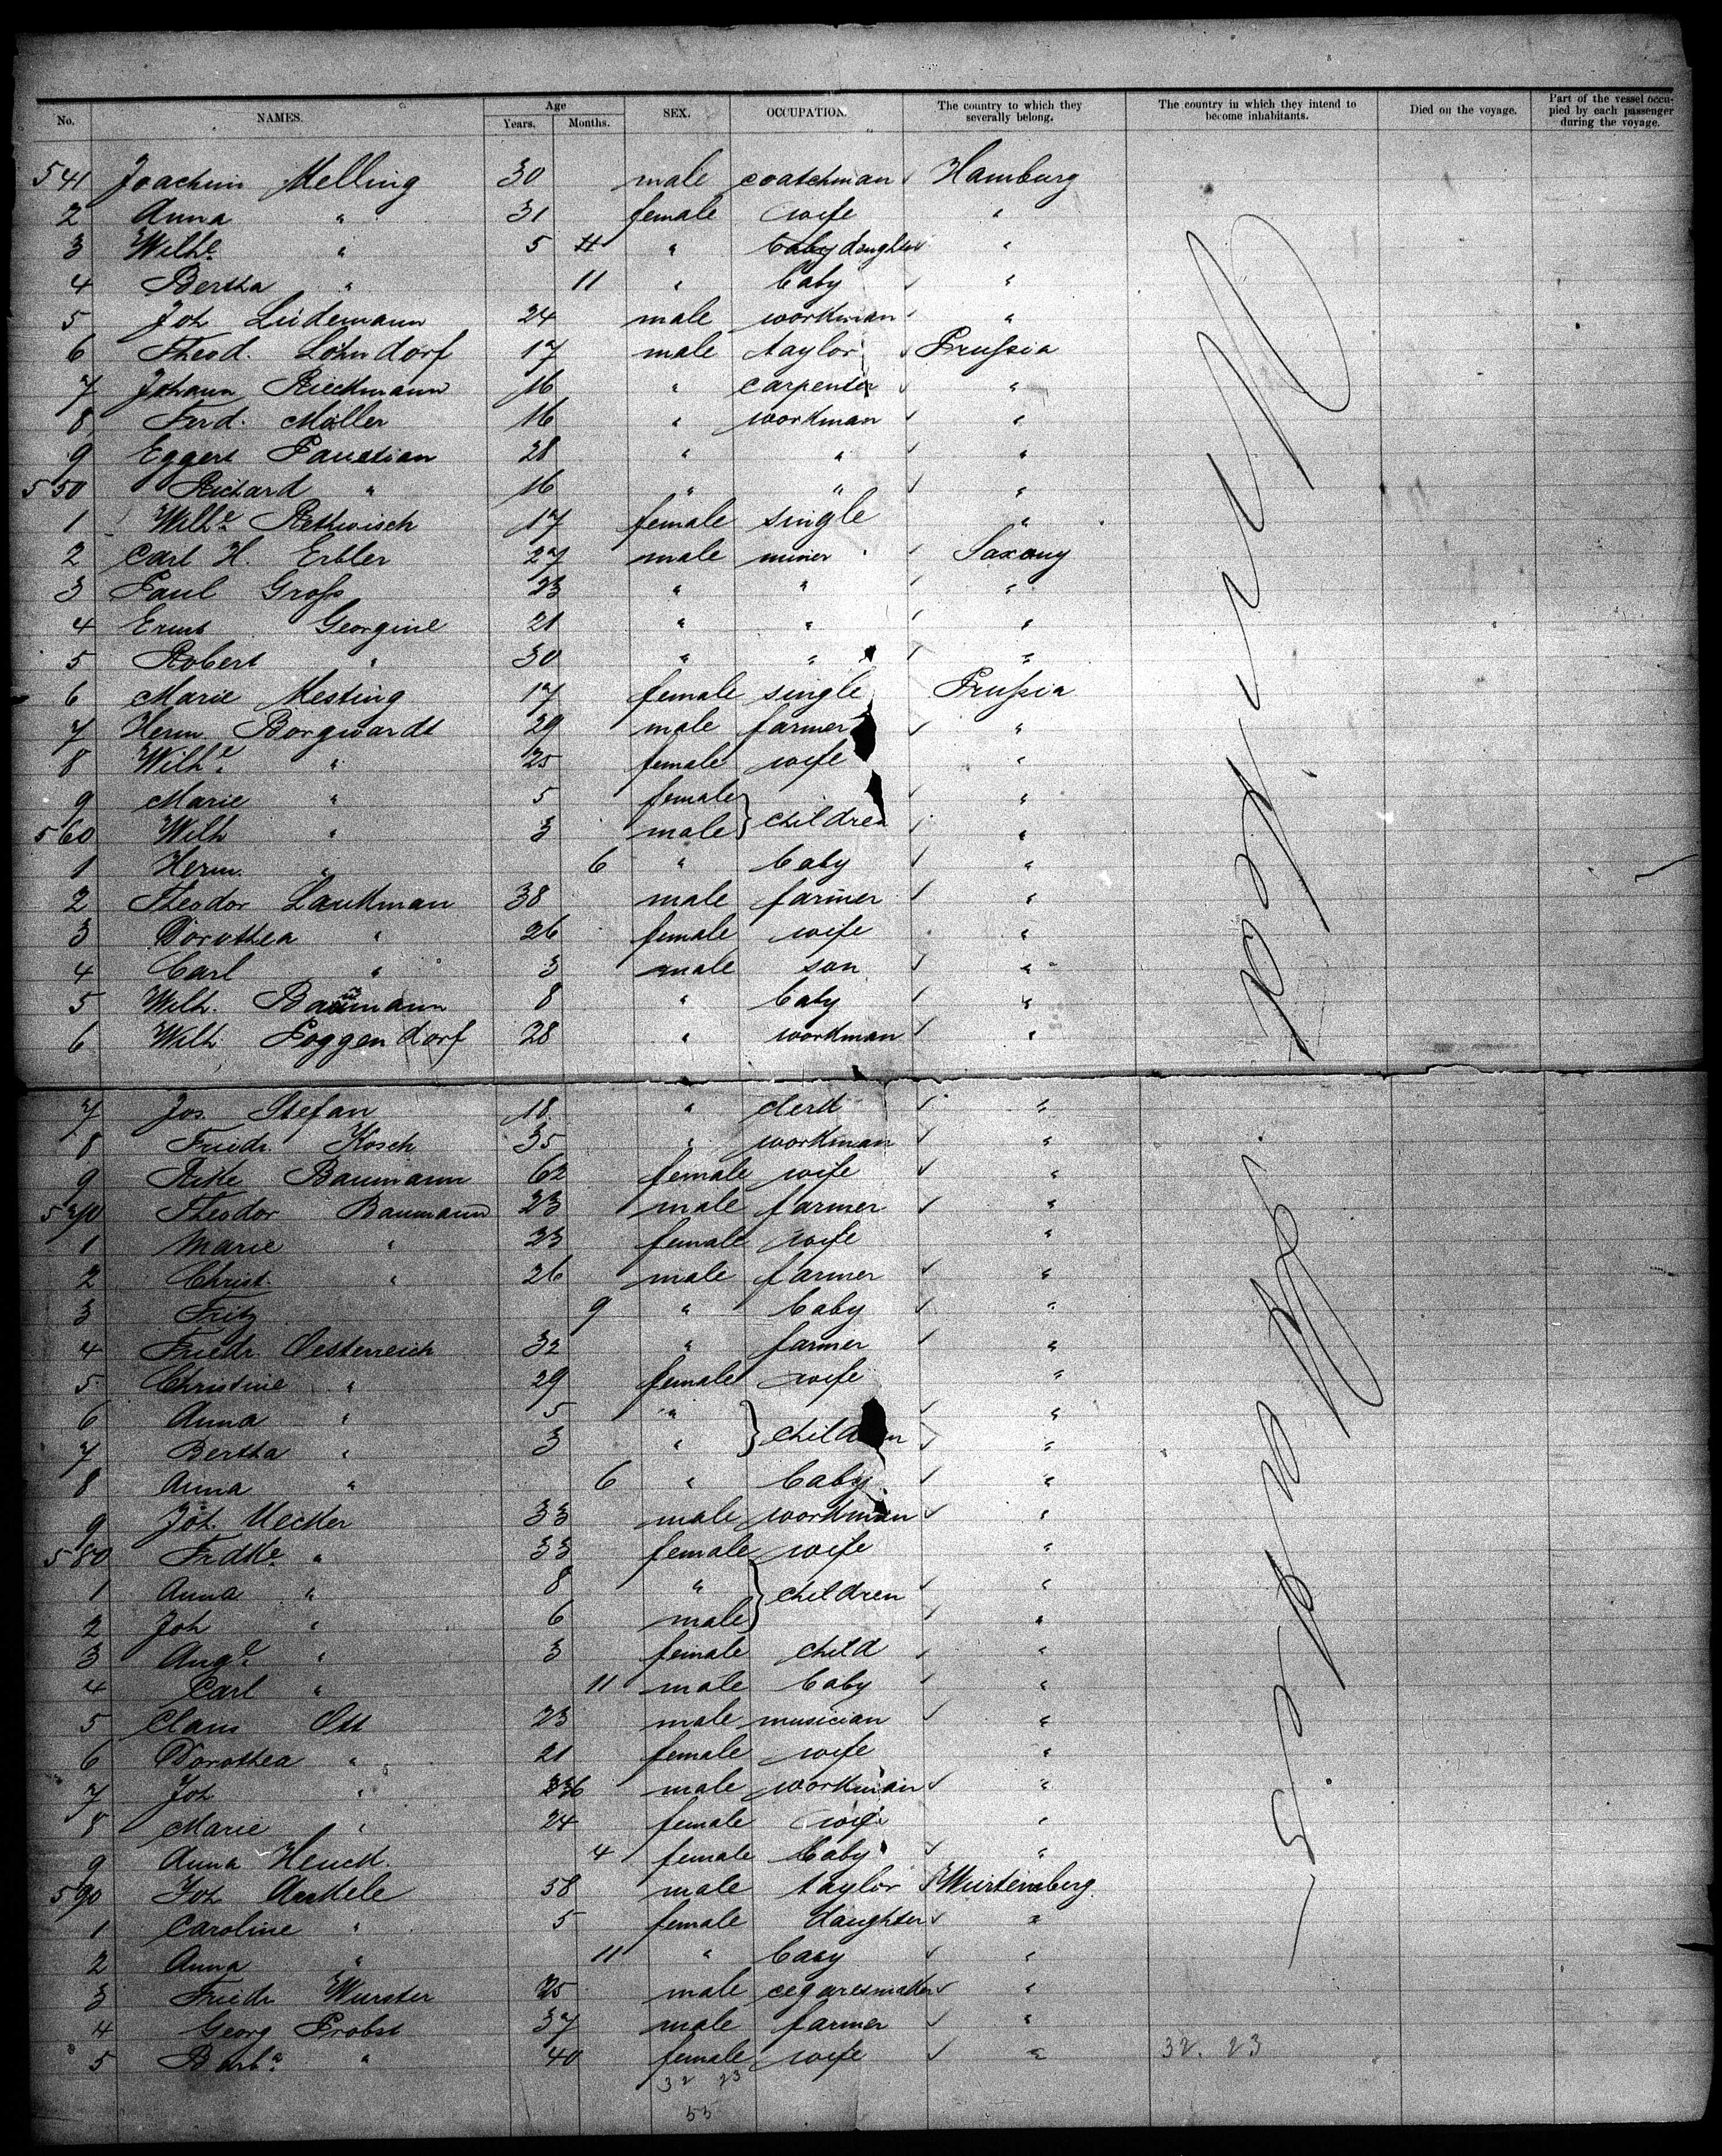 No. NAMES. Age Years. Months. SEX. OCCUPATION. The country to which they severally belong. The country in which they intend to become inhabitants. Died on the voyage. Part of the vessel occupied by each passenger during the voyage.
541 Joachim Melling 30 male coatchman Hamburg
2 Anna " 31 female wife "
3 Wilhe " 5 " baby daughter "
4 Bertha " 11 " baby "
5 Joh Lüdemann 24 male workman "
6 Theod. Löhndorf 17 male taylor Prussia
7 Johann Rieckmann 16 " carpenter "
8 Ferd. Möller 16 " workman "
9 Eggert Paustian 28 " " "
550 Richard " 16 " " "
1 Wilhe Rethwisch 17 female single "
2 Carl H. Erbler 27 male miner Saxony
3 Paul Gross 23 " " "
4 Ernst Georgine 21 " " "
5 Robert " 30 " " "
6 Marie Mesting 17 female single Prussia
7 Herm. Borgwardt 29 male farmer "
8 Wilhe " 25 female wife "
9 Marie " 5 female children "
560 Wilh " 3 male "
1 Herm. " 6 " baby "
2 Theodor Laukman 38 male farmer "
3 Dorothea " 26 female wife "
4 Carl " 3 male son "
5 Wilh. Baumann 8 " baby "
6 Wilh Poggendorf 28 " workman "
7 Jos Stefan 18 " clerk "
8 Friedr. Kosch 35 " workman "
9 Rike Baumann 62 female wife "
570 Theodor Baumann 23 male farmer "
1 Marie " 23 female wife "
2 Christ. " 26 male farmer "
3 Fritz 9 " baby "
4 Friedr. Oesterreich 32 " farmer "
5 Christine " 29 female wife "
6 Anna " 5 " children "
7 Bertha " 3 " "
8 Anna " 6 " baby "
9 Joh. Uecker 33 male workman "
580 Frdke " 33 female wife "
1 Anna " 8 " children "
2 Joh " 6 male "
3 Auge " 3 female child "
4 Carl " 11 male baby "
5 Claus Ott 23 male musician "
6 Dorothea " 21 female wife "
7 Joh " 36 male workman "
8 Marie " 24 female wife "
9 Anna Henck. 4 female baby "
590 Joh Ankele 58 male taylor Würtemberg
1 Caroline " 5 female daughter "
2 Anna " 11 " baby "
3 Friedr Wurster 25 male cegaresmaker "
4 Georg Probst 37 male farmer "
5 Barba " 40 female wife " 32. 23
32 23
55